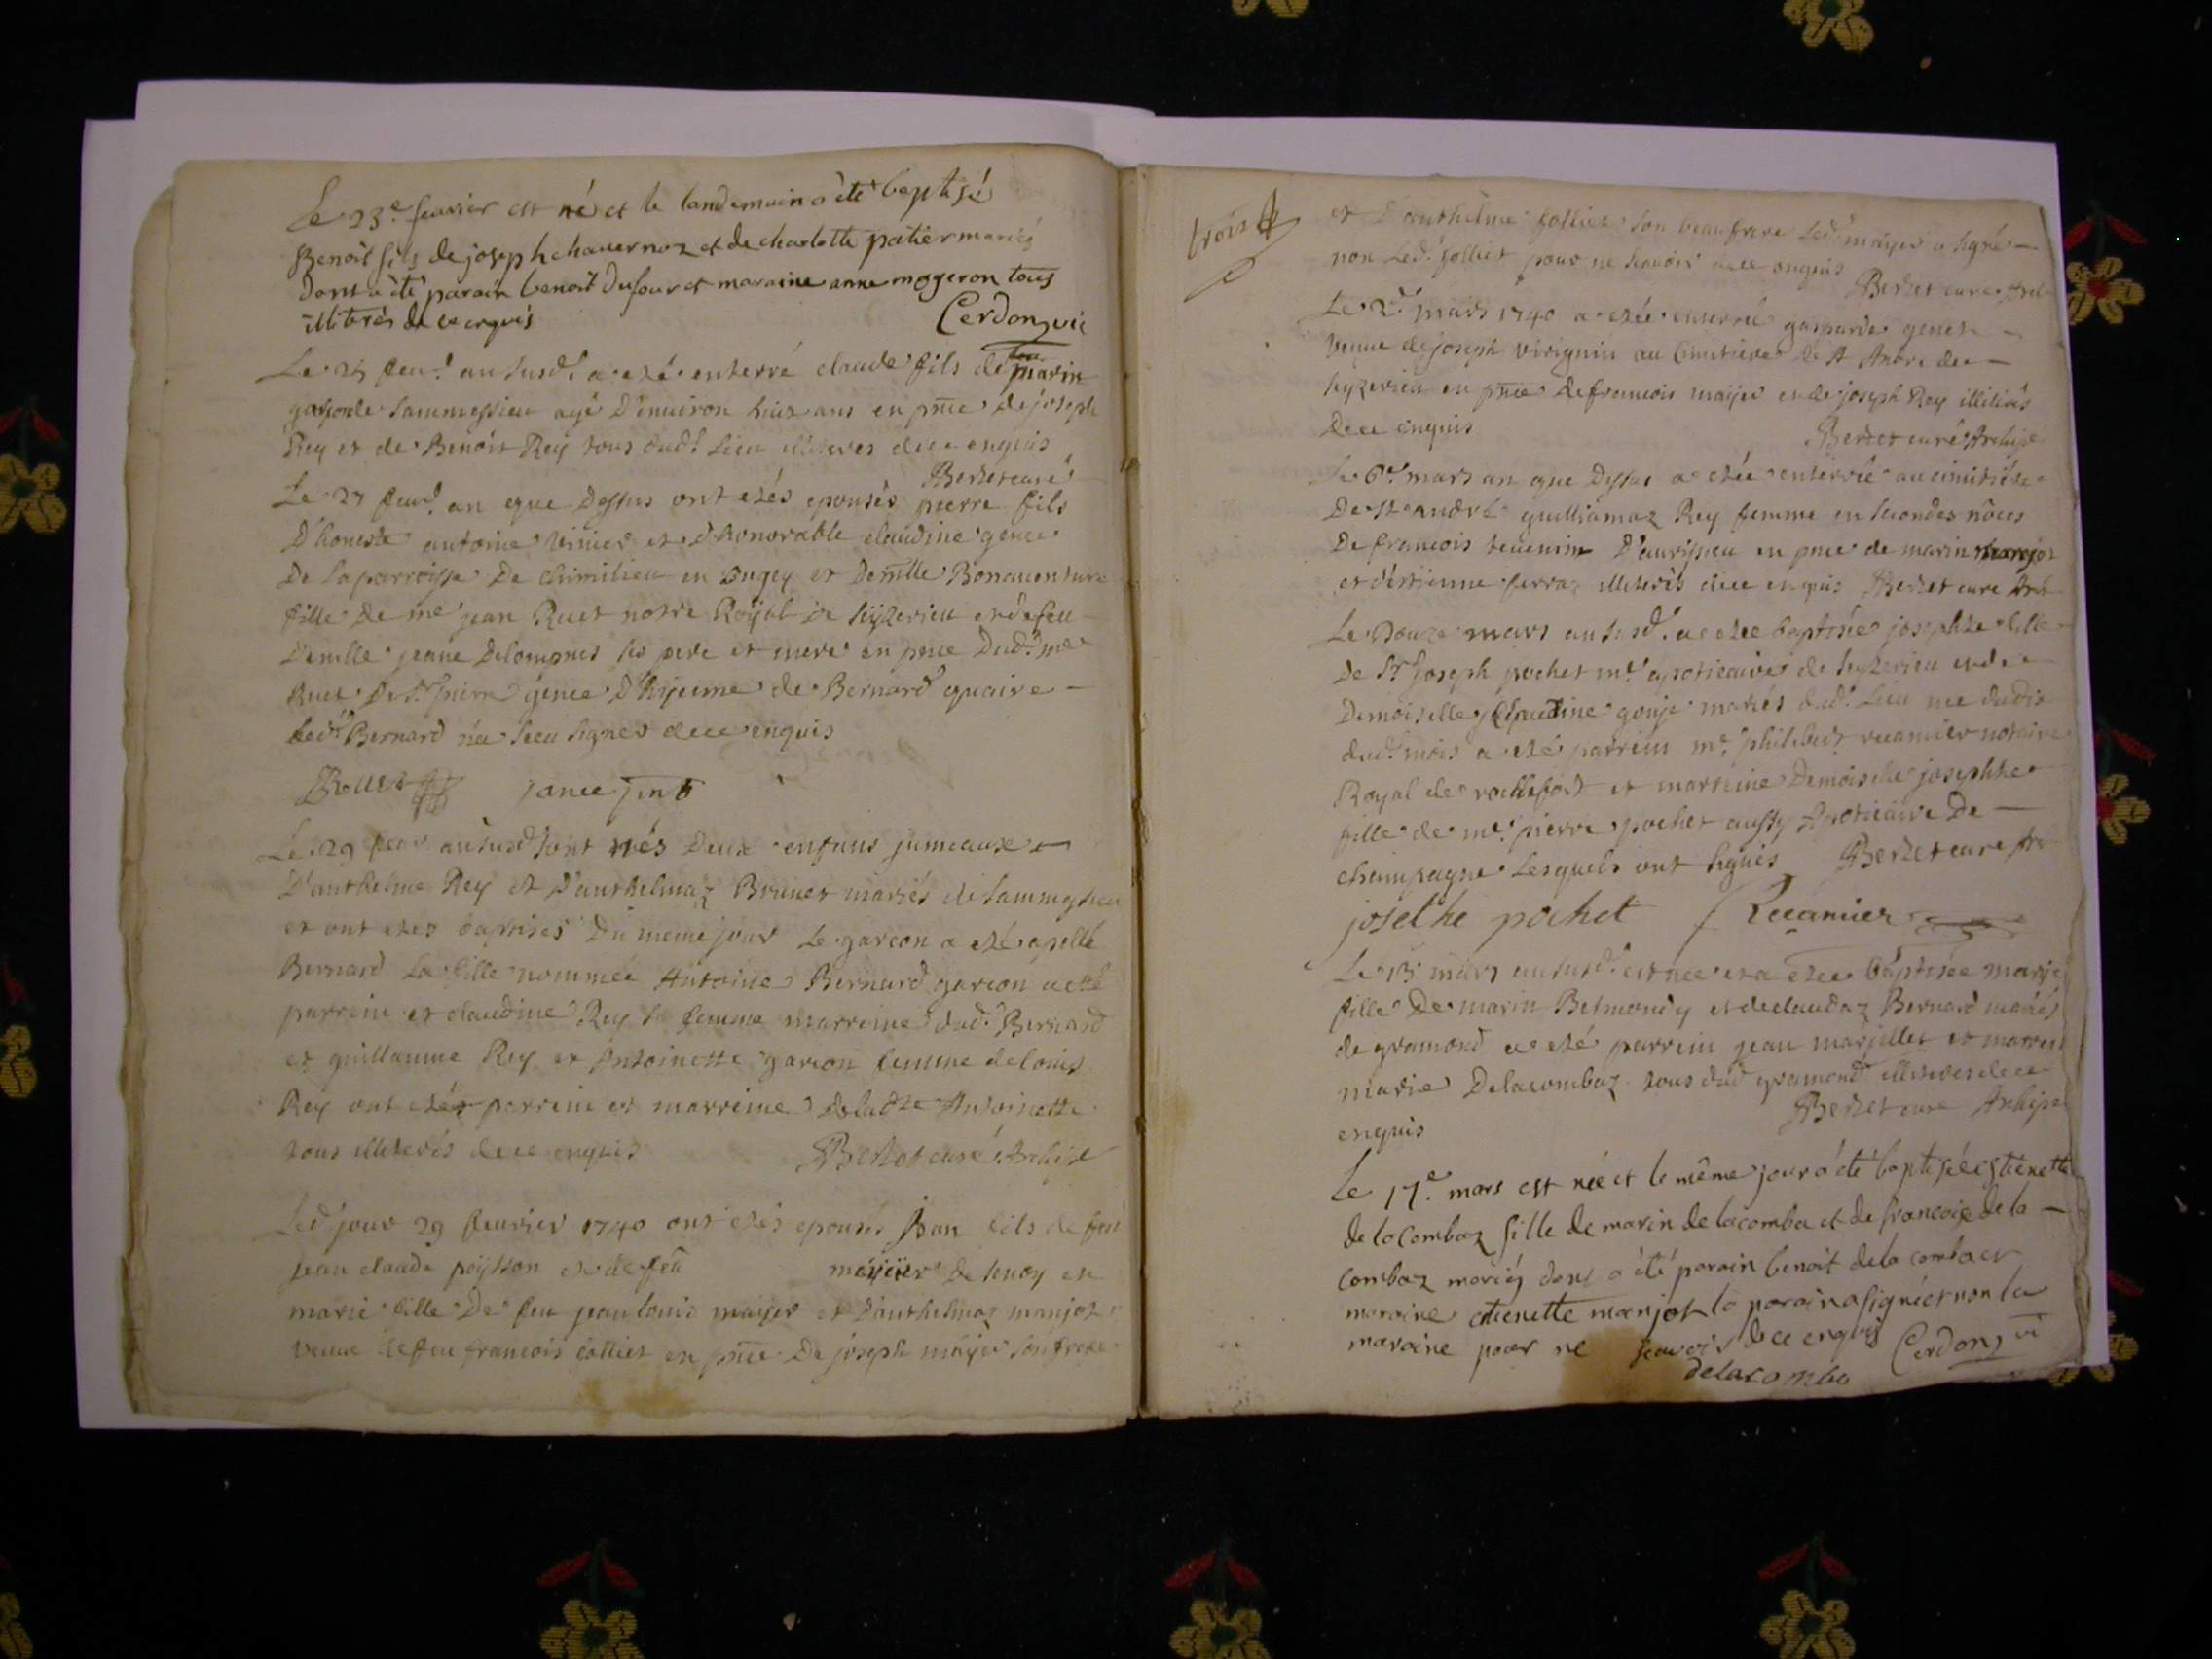 Le 23e. feuvier est né et le landemain a èté baptisé
Benoit fils de joseph chavernoz et de charlotte patier mariés
dont a èté parain benoit Dufour et maraine anne mogeron tous
illiterés de ce enquis Cerdon vic
Le 25 feur. au susd. a eté enterré claude fils de feu marin
de sammessieu agé D'enuiron huit ans en pnce de joseph
Rey et de Benoit Rey tous dud. Lieu illiteres de ce enquis
Berlet curé
Le 27 feur. an que Dessus ont etés epousés pierre fils
D'honeste antoine vinier et d'honorable claudine gence
De la parroisse De chimilieu en Bugey et Demlle Bonauenture
fille De me jean Ruet notre Royal de seyzerieu et de feu
Demlle jeane Delompnes ses pere et mere en pnce Dud. me
Ruet De Sr. pierre gence D'hyeume de Bernard quaire
Led. Bernard n'a sceu signer de ce enquis
Ruet jance
Le 29 feur au susd sont nés Deux enfans jumeaux
D'anthelme Rey et D'anthelmaz Brunet mariés de sammessieu
et ont etés baptisés Du meme jour Le garcon a eté apellé
Bernard La fille nommée Antoine Bernard garcon a eté
parrein et claudine Rey sa femme marreine dud. Bernard
et guillaume Rey et Antoinette garcon femme de louis
Rey ont etés parrein et marreine de ladte Antoinette
tous illiterés de ce enquis Berlet curé Archipr
Led jour 29 feurier 1740 ont etés epousés jean fils de feu
jean claude poysson et de feu meyier de senoy et
marie fille De feu jean louis mayer et d'anthelmaz manjot
veuue de feu francois folliet en pnce De joseph mayer son frere
trois
et D'anthelme folliet son beau frere Led. mayer a signé
non Led. folliet pour ne scauoir de ce enquis
Berlet cure Arch
Le 2d. mars 1740 a etée enterrée gasparde genet
veuue de joseph virignin au cimitiere de St Andre de
seyzerieu en pnce de francois mayer et de joseph Rey illiterés
De ce enquis Berlet curé Archipr
Le 6e. mars an que Dessus a etée enterrée au cimitiere
De St andré guilliamaz Rey femme en secondes nôces
De francois teuenin D'aurissieu en pnce de marin marjot
et d'estienne ferraz illiterés de ce enquis Berlet cure Arch
Le Douze mars au susd. a etée baptisée josephte fille
De Sr joseph pochet me. apoticaire de seyzerieu et de
Demoiselle claudine gonje mariés dud. Lieu nee du dix
dud. mois a eté parrein me. philibert recamier notaire
Royal de rochefort et marreine Demoiselle josephte
fille de me. pierre pochet aussy Apoticaire De
champagne Lesquels ont signés Berlet cure Ar
josethe pochet Recamier
Le 15 mars au susd. est nee et a etee baptisée marie
fille De marin Belmondy et de claudaz Bernard mariés
de gramond a eté parrein jean marjollet et marrein
marie Delacombaz tous dud gramond illiteres de ce
enquis Berlet cure Archipr
Le 17e. mars est née et le même jour a èté baptisée estienette
de lacombaz fille de marin de lacomba et de francoise de la
combaz mariés dont a èté parain benoit de la comba et
maraine etienette manjot le parain a signé et non la
maraine pour ne scavoir de ce enquis Cerdon vi
delacomba